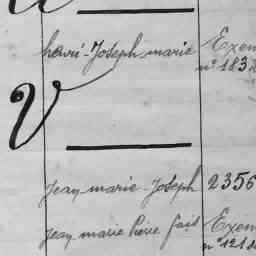 henri-Joseph marie Exem
n° 1832
V
Jean-marie-Joseph 2356
Jean marie Pierre fait Exem
n° 1212